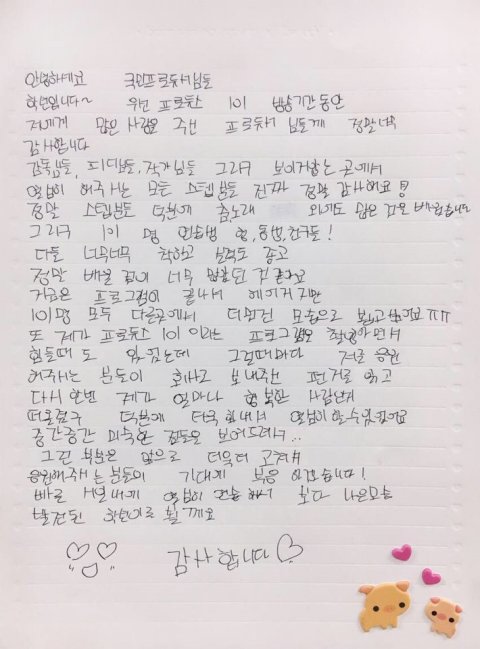 안녕하세요 국민프로듀서님들
입니다~ 우선 프로듀스 101 방송기간동안
저에게 많은 사랑을 주신 프로듀서 님들께 정말너무
감사합니다
감독님들, 피디님들, 작가님들 그리구 보이지않는 곳에서
열심히 해주시는 모든 스텝분들 진짜 정말 감사해요!
정말 스텝분들 덕분에 춤, 노래 외에도 많은 걸 배웁니다
그리구 101 명 연습생 형, 동생, 친구들!
다들 너무너무 착하고 실력도 좋고
정말 배울 점이 너무 많았던 것 같아요
지금은 프로그램이 끝나서 헤어지지만
101명 모두 다른곳에서 더 멋진 모습으로 보고싶어요 ㅠㅠ
또 제가 프로듀스 101 이라는 프로그램을 촬영하면서
힘들때 도 있었는데 그럴때마다 저를 응원
해주시는 분들이 회사로 보내주신 편지를 읽고
다시 한번 제가 얼마나 행복한 사람인지
떠올렸구 덕분에 더욱 힘내서 열심히 할 수 있었어요
중간중간 미숙한 점들을 보여드려서..
그런 부분은 앞으로 더욱더 고쳐서
응원해주시는 분들의 기대에 보답 하겠습니다!
빠른 시일내에 열심히 연습 해서 보다 나은모습
발전된 로 뵐께요
감사합니다